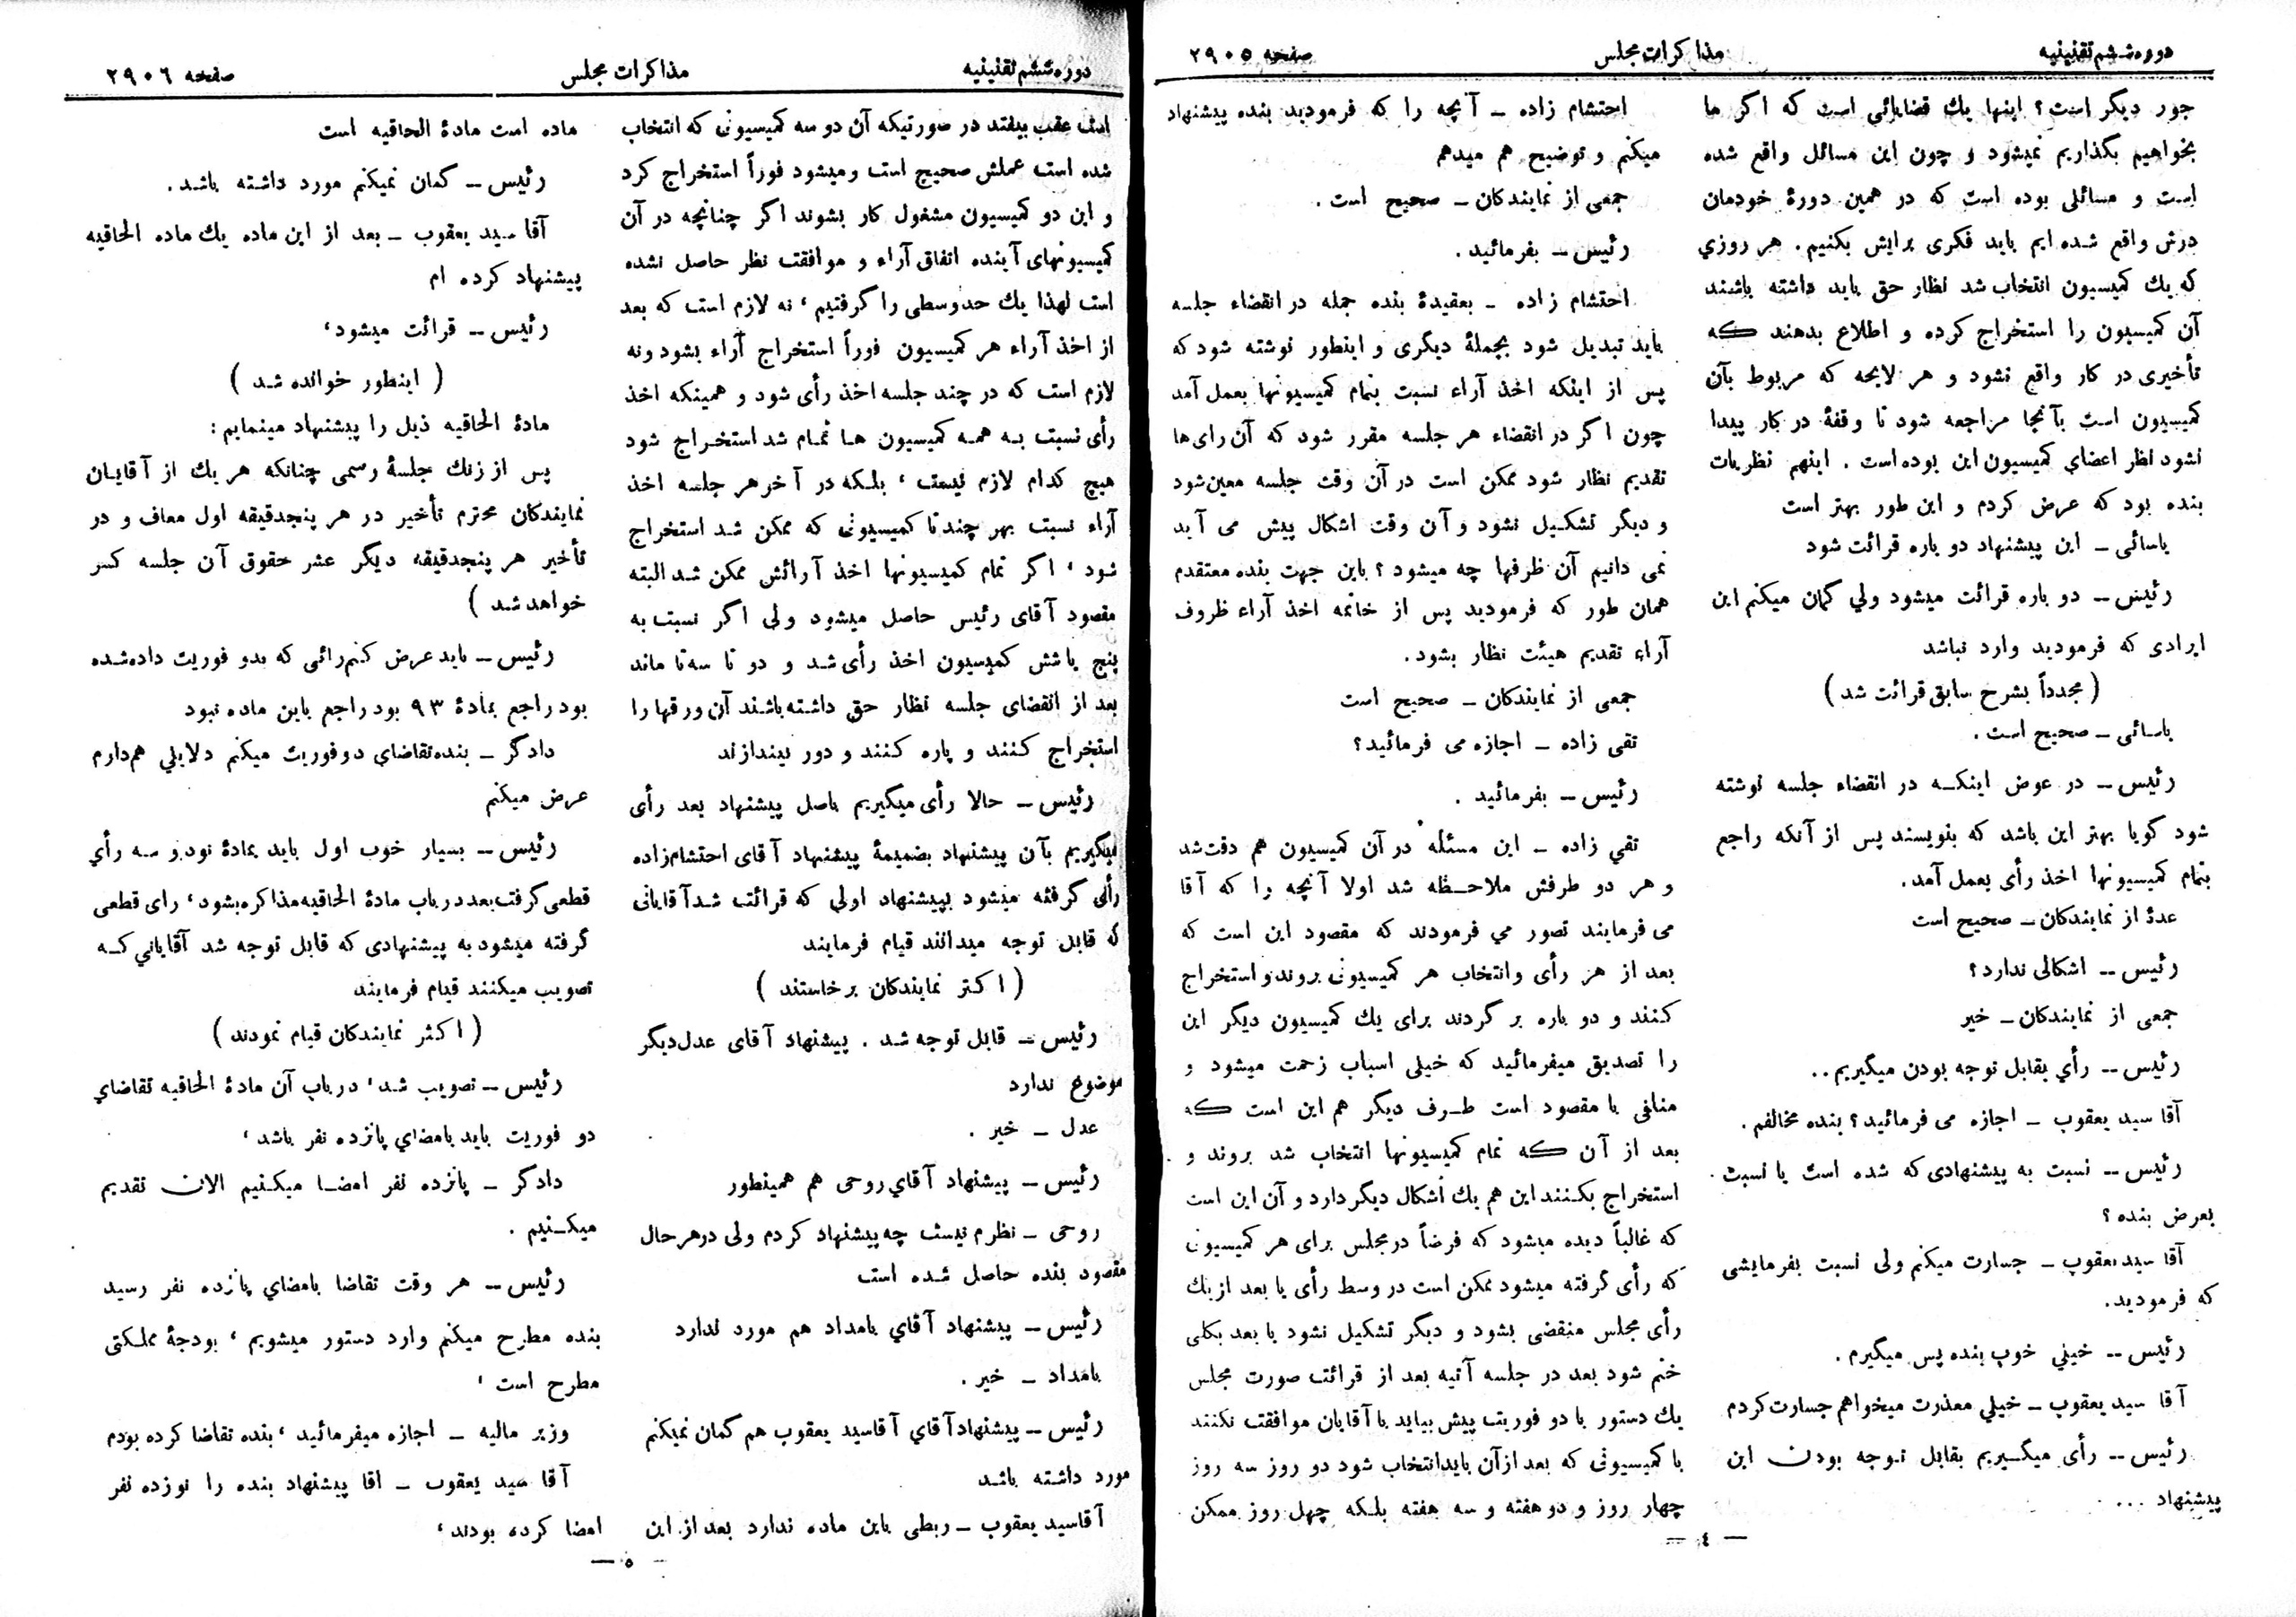 دوره ششم تقنینیه
مذاکرات مجلس
صفحه ۲۹۰۵
جور دیگر است؟ اینها یك قضایائی است که اگر ما
بخواهیم بگذاریم نمیشود و چون این مسائل واقع شده
است و مسائلی بوده است که در همین دورهٔ خودمان
درش واقع شده ایم باید فکری برایش بکنیم. هر روزي
که یك کمیسیون انتخاب شد نظار حق باید داشته باشند
آن کمیسیون را استخراج کرده و اطلاع بدهند که
تأخیری در کار واقع نشود و هر لایحه که مربوط بآن
کمیسیون است بآنجا مراجعه شود تا وقفهٔ در کار پیدا
نشود نظر اعضاي کمیسیون این بوده است . اینهم نظریات
بنده بود که عرض کردم و این طور بهتر است
یاسائی – این پیشنهاد دو باره قرائت شود
رئیس – دو باره قرائت میشود ولي گمان میکنم این
ایرادی که فرمودید وارد نباشد
( مجدداً بشرح سابق قرائت شد )
یاسائی – صحیح است .
رئیس – در عوض اینکه در انقضاء جلسه نوشته
شود گویا بهتر این باشد که بنویسند پس از آنکه راجع
بتمام کمیسیونها اخذ رأی بعمل آمد.
عدهٔ از نمایندکان – صحیح است
رئیس – اشکالی ندارد؟
جمعی از نمایندکان – خیر
رئیس – رأي بقابل توجه بودن میگیریم..
آقا سید یعقوب – اجازه می فرمائید؟ بنده مخالفم .
رئیس – نسبت به پیشنهادی که شده است یا نسبت
بعرض بنده؟
آقا سید یعقوب – جسارت میکنم ولی نسبت بفرمایشی
که فرمودید.
رئیس – خیلي خوب بنده پس میگیرم .
آقا سید یعقوب – خیلي معذرت میخواهم جسارت کردم
رئیس – رأی میگیریم بقابل توجه بودن این
پیشنهاد ...
احتشام زاده – آنچه را که فرمودید بنده پیشنهاد
میکنم و توضیح هم میدهم
جمعی از نمایندکان – صحیح است .
رئیس – بفرمائید .
احتشام زاده – بعقیدهٔ بنده جمله در انقضاء جلسه
باید تبدیل شود بجملهٔ دیگری و اینطور نوشته شود که
پس از اینکه اخذ آراء نسبت بتمام کمیسیونها بعمل آمد
چون اگر در انقضاء هر جلسه مقرر شود که آن رای ها
تقدیم نظار شود ممکن است در آن وقت جلسه معین شود
و دیگر تشکیل نشود و آن وقت اشکال پیش می آید
نمی دانیم آن ظرفها چه میشود؟ باین جهت بنده معتقدم
همان طور که فرمودید پس از خاتمه اخذ آراء ظروف
آراء تقدیم هیئت نظار بشود.
جمعی از نمایندکان – صحیح است
تقی زاده – اجازه می فرمائید؟
رئیس – بفرمائید .
تقي زاده – این مسئله در آن کمیسیون هم دقت شد
و هر دو طرفش ملاحظه شد اولا آنچه را که آقا
می فرمایند تصور مي فرمودند که مقصود این است که
بعد از هر رأی و انتخاب هر کمیسیونی بروند و استخراج
کنند و دو باره بر گردند برای یك کمیسیون دیگر این
را تصدیق میفرمائید که خیلی اسباب زحمت میشود و
منافی با مقصود است طرف دیگر هم این است که
بعد از آن که تمام کمیسیونها انتخاب شد بروند و
استخراج بکنند این هم یك اشکال دیگر دارد و آن این است
که غالباً دیده میشود که فرضاً در مجلس برای هر کمیسیون
که رأی گرفته میشود ممکن است در وسط رأی یا بعد از یك
رأی مجلس منقضی بشود و دیگر تشکیل نشود یا بعد بکلی
ختم شود بعد در جلسه آتیه بعد از قرائت صورت مجلس
یك دستور با دو فوریت پیش بیاید یا آقایان موافقت نکنند
با کمیسیونی که بعد از آن باید انتخاب شود دو روز سه روز
چهار روز و دو هفته و سه هفته بلکه چهل روز ممکن
— ٤ —
دوره ششم تقنینیه
مذاکرات مجلس
صفحه ۲۹۰٦
است عقب بیفتد در صورتیکه آن دو سه کمیسیونی که انتخاب
شده است عملش صحیح است و میشود فوراً استخراج کرد
و این دو کمیسیون مشغول کار بشوند اگر چنانچه در آن
کمیسیونهای آینده اتفاق آراء و موافقت نظر حاصل نشده
است لهذا یك حد وسطی را گرفتیم ، نه لازم است که بعد
از اخذ آراء هر کمیسیون فوراً استخراج آراء بشود و نه
لازم است که در چند جلسه اخذ رأی شود و همینکه اخذ
رأی نسبت به همه کمیسیون ها تمام شد استخراج شود
هیچ کدام لازم نیست ، بلکه در آخر هر جلسه اخذ
آراء نسبت بهر چند تا کمیسیونی که ممکن شد استخراج
شود ، اگر تمام کمیسیونها اخذ آرائش ممکن شد البته
مقصود آقای رئیس حاصل میشود ولی اگر نسبت به
پنج یا شش کمیسیون اخذ رأی شد و دو تا سه تا ماند
بعد از انقضای جلسه نظار حق داشته باشند آن ورقها را
استخراج کنند و پاره کنند و دور بیندازند
رئیس – حالا رأی میگیریم باصل پیشنهاد بعد رأی
میگیریم بآن پیشنهاد بضمیمهٔ پیشنهاد آقای احتشام زاده
رأی گرفته میشود بپیشنهاد اولی که قرائت شد آقایانی
که قابل توجه میدانند قیام فرمایند
( اکثر نمایندکان برخاستند )
رئیس – قابل توجه شد . پیشنهاد آقای عدل دیگر
موضوع ندارد
عدل – خیر .
رئیس – پیشنهاد آقاي روحی هم همینطور
روحی – نظرم نیست چه پیشنهاد کردم ولی در هر حال
مقصود بنده حاصل شده است
رئیس – پیشنهاد آقاي بامداد هم مورد ندارد
بامداد – خیر .
رئیس – پیشنهاد آقاي آقاسید یعقوب هم گمان نمیکنم
مورد داشته باشد
آقاسید یعقوب – ربطی باین ماده ندارد بعد از این
ماده است مادهٔ الحاقیه است
رئیس – گمان نمیکنم مورد داشته باشد .
آقا سید یعقوب – بعد از این ماده یك ماده الحاقیه
پیشنهاد کرده ام
رئیس – قرائت میشود،
( اینطور خوانده شد )
مادهٔ الحاقیه ذیل را پیشنهاد مینمایم :
پس از زنك جلسهٔ رسمی چنانکه هر یك از آقایان
نمایندکان محترم تأخیر در هر پنجدقیقه اول معاف و در
تأخیر هر پنجدقیقه دیگر عشر حقوق آن جلسه کسر
خواهد شد )
رئیس – باید عرض کنم رائی که بدو فوریت داده شده
بود راجع بمادهٔ ۹۳ بود راجع باین ماده نبود
دادگر – بنده تقاضای دو فوریت میکنم دلایلي هم دارم
عرض میکنم
رئیس – بسیار خوب اول باید بمادهٔ نود و سه رأي
قطعی گرفت بعد در باب مادهٔ الحاقیه مذاکره بشود ، رای قطعی
گرفته میشود به پیشنهادی که قابل توجه شد آقایاني که
تصویب میکنند قیام فرمایند
( اکثر نمایندکان قیام نمودند )
رئیس – تصویب شد ، در باب آن مادهٔ الحاقیه تقاضاي
دو فوریت باید بامضاي پانزده نفر باشد ،
دادگر – پانزده نفر امضا میکنیم الان تقدیم
میکنیم .
رئیس – هر وقت تقاضا بامضاي پانزده نفر رسید
بنده مطرح میکنم وارد دستور میشویم ، بودجهٔ مملکتی
مطرح است ،
وزیر مالیه – اجازه میفرمائید ، بنده تقاضا کرده بودم
آقا سید یعقوب – اقا پیشنهاد بنده را نوزده نفر
امضا کرده بودند ،
— ٥ —